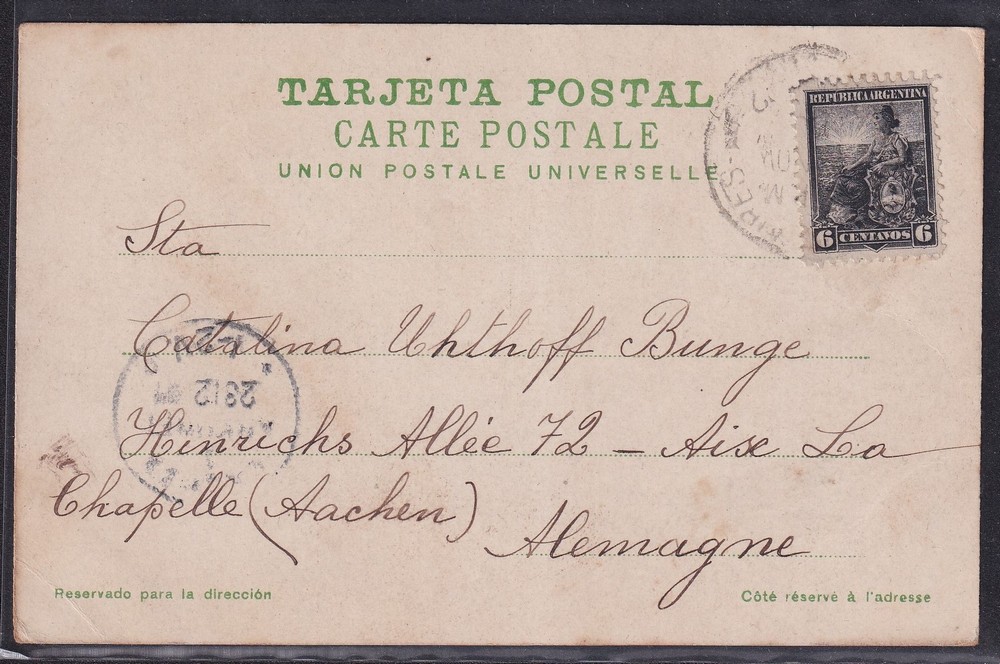 TARJETA POSTAL
CARTE POSTALE
UNION POSTALE UNIVERSELLE
REPUBLICA ARGENTINA
6 CENTAVOS 6
Sta
Catalina Uhthoff Bunge
Hinrichs Allée 72 – Aixe La
Chapelle (Aachen)
Alemagne
2812
Reservado para la dirección
Côté réservé à l'adresse